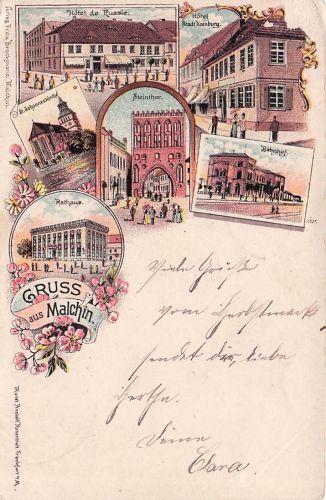 Hôtel de Russie.
Hôtel
Stadt Hamburg.
St. Johanneskirche
Steinthor.
Bahnhof.
Rathaus.
GRUSS
aus Malchin.
Viele Grüße
vom Herbstmarkt
sendet dir, liebe
Hertha.
Deine
Clara.